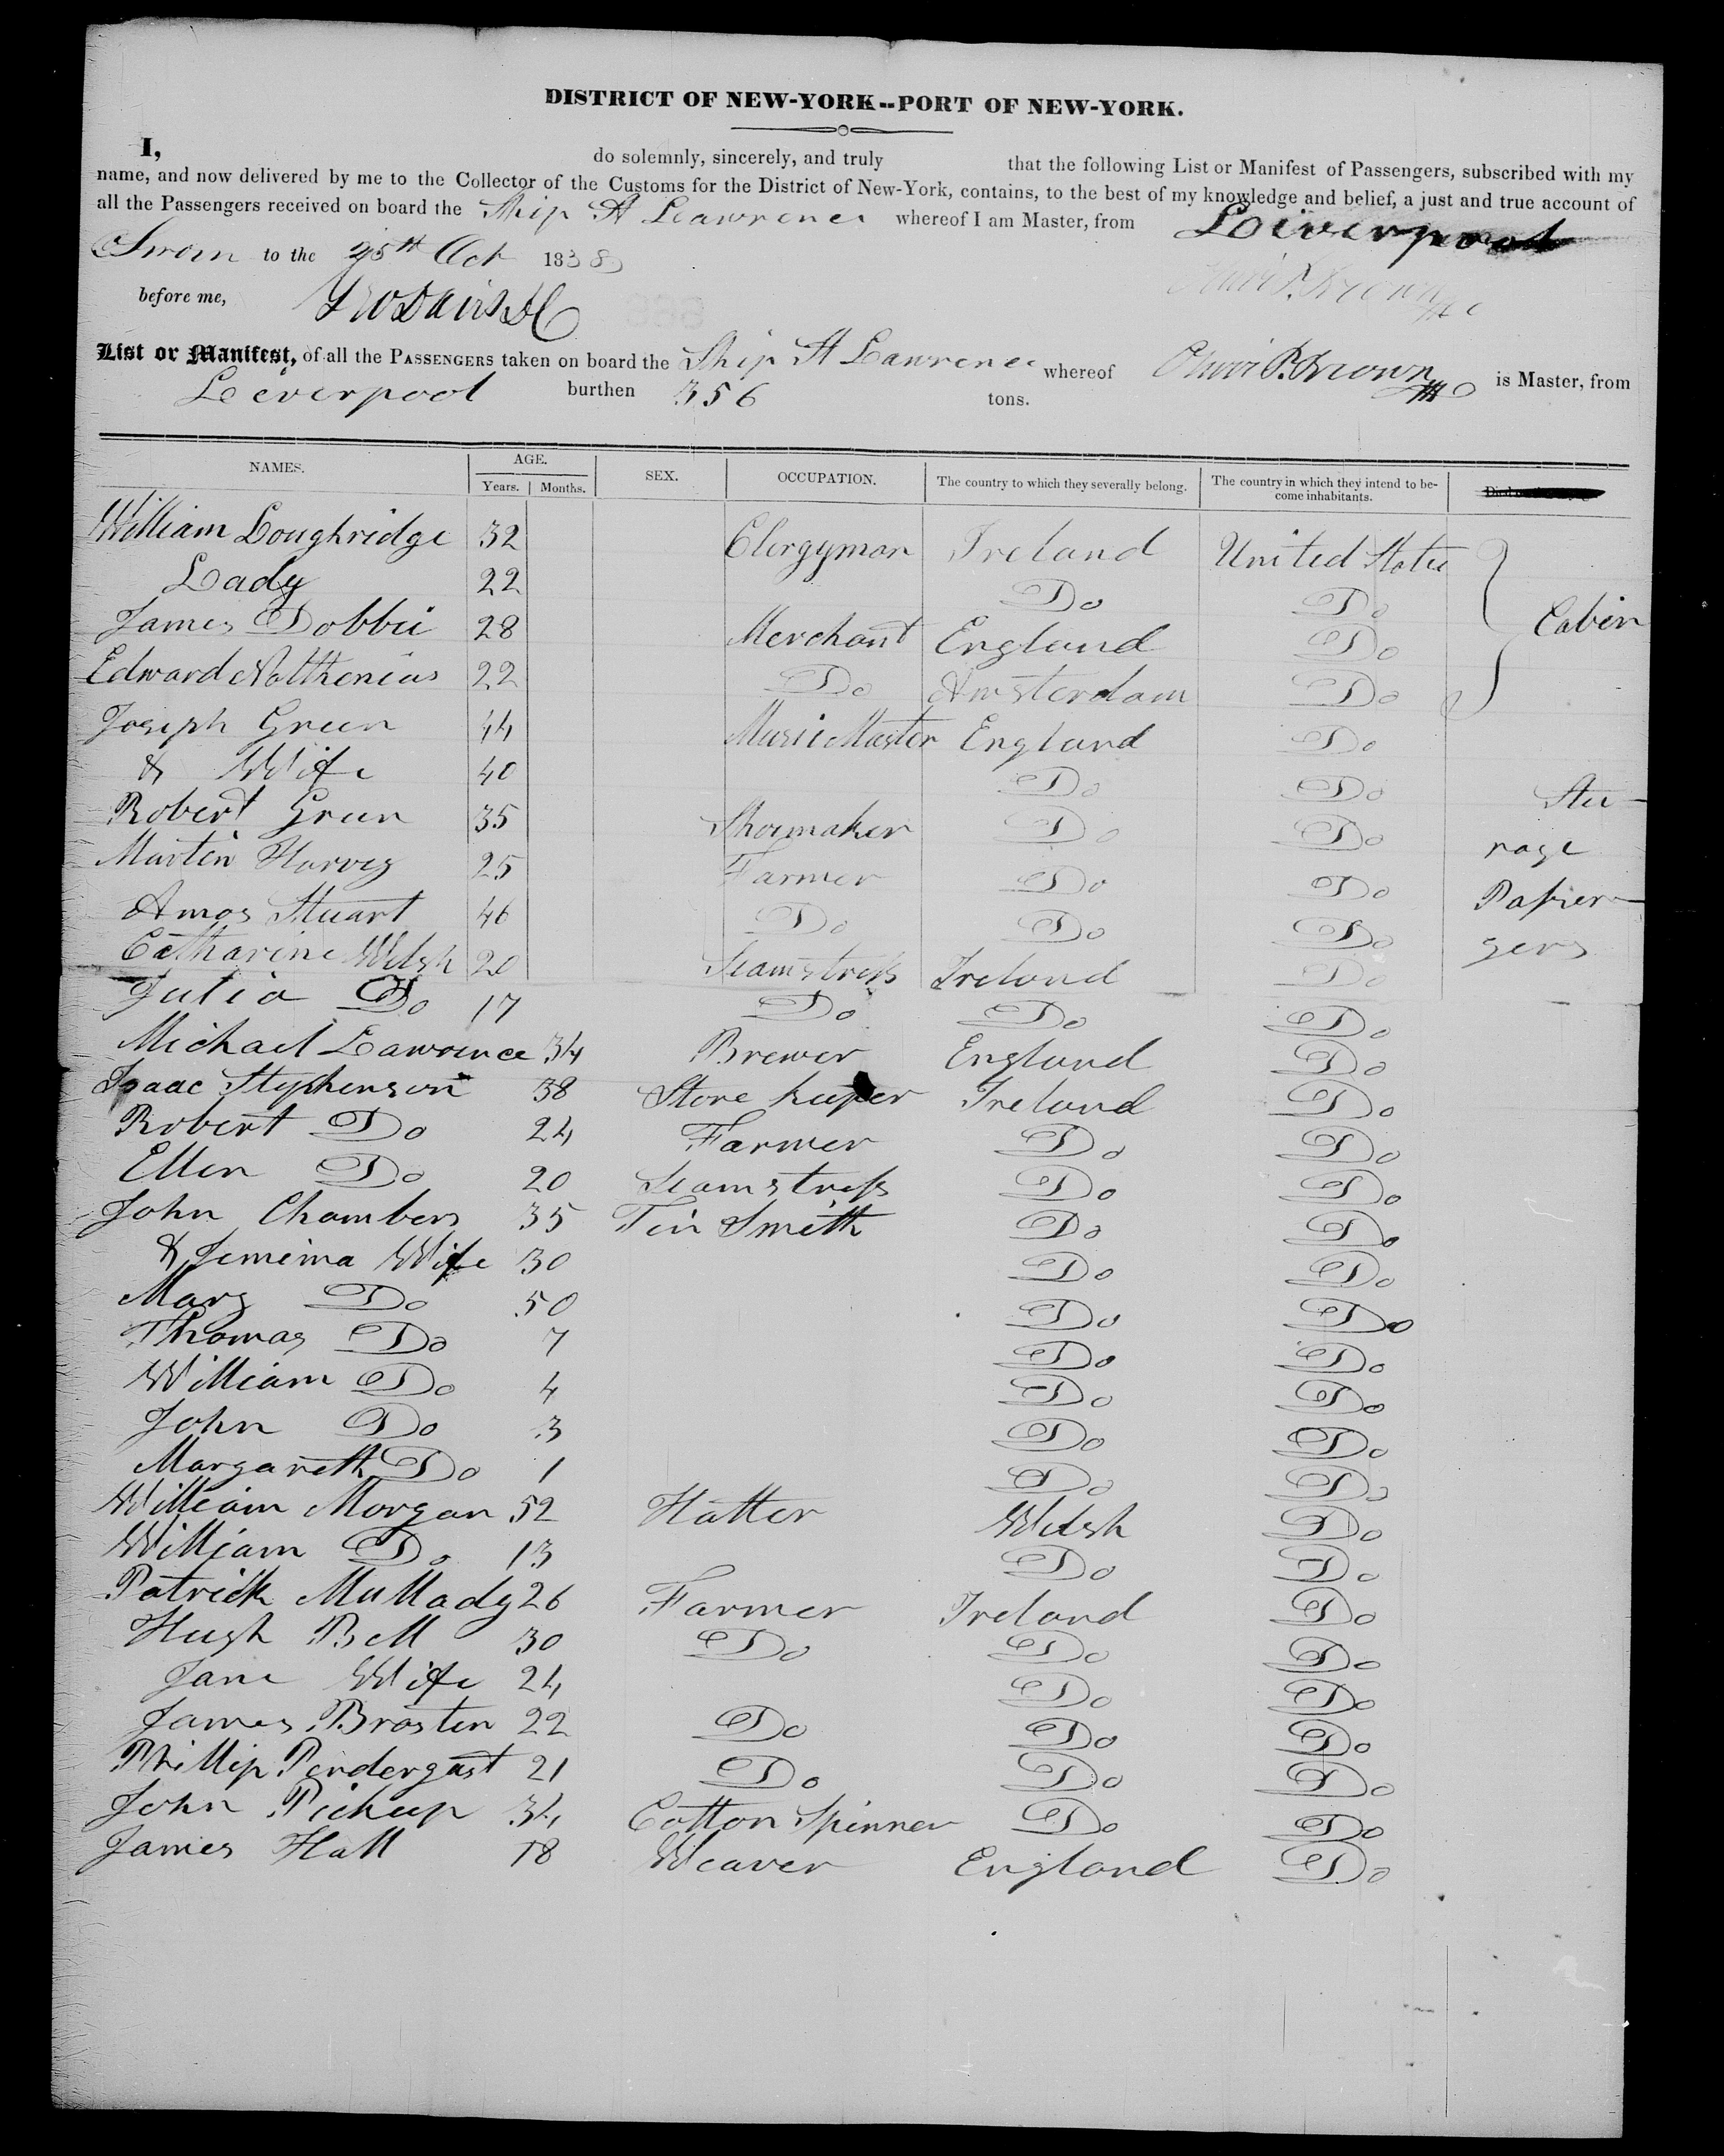 DISTRICT OF NEW-YORK--PORT OF NEW-YORK.
I, do solemnly, sincerely, and truly that the following List or Manifest of Passengers, subscribed with my
name, and now delivered by me to the Collector of the Customs for the District of New-York, contains, to the best of my knowledge and belief, a just and true account of
all the Passengers received on board the Ship St Lawrence whereof I am Master, from Liverpool
Sworn to the 25th Oct 1838
before me,
List or Manifest, of all the PASSENGERS taken on board the Ship St Lawrence whereof Oliver P. Brown is Master, from
Leverpool burthen 356 tons.
NAMES. AGE. Years. Months. SEX. OCCUPATION. The country to which they severally belong. The country in which they intend to become inhabitants.
William Loughridge 32 Clergyman Ireland United States
Lady 22 Do Do Cabin
James Dobbie 28 Merchant England Do
Edward 22 Do Amsterdam Do
Joseph Green 44 Music Master England Do
& Wife 40 Do Do Stee-
Robert Green 35 Shoemaker Do Do rage
Martin Harvey 25 Farmer Do Do Passen-
Amos Stuart 46 Do Do Do gers
Catharine Welsh 20 Seamstress Ireland Do
Julia Do 17 Do Do Do
Michael Lawrence 34 Brewer England Do
Isaac Stephenson 38 Store keeper Ireland Do
Robert Do 24 Farmer Do Do
Ellen Do 20 Seamstress Do Do
John Chambers 35 Tin Smith Do Do
& Jemima Wife 30 Do Do
Mary Do 50 Do Do
Thomas Do 7 Do Do
William Do 4 Do Do
John Do 3 Do Do
Margareth Do 1 Do Do
William Morgan 52 Hatter Welsh Do
William Do 13 Do Do
Patrick Mullady 26 Farmer Ireland Do
Hugh Bell 30 Do Do Do
Jane Wife 24 Do Do
James Brosten 22 Do Do Do
Phillip Pendergast 21 Do Do Do
John Pickup 34 Cotton Spinner Do Do
James Hall 18 Weaver England Do